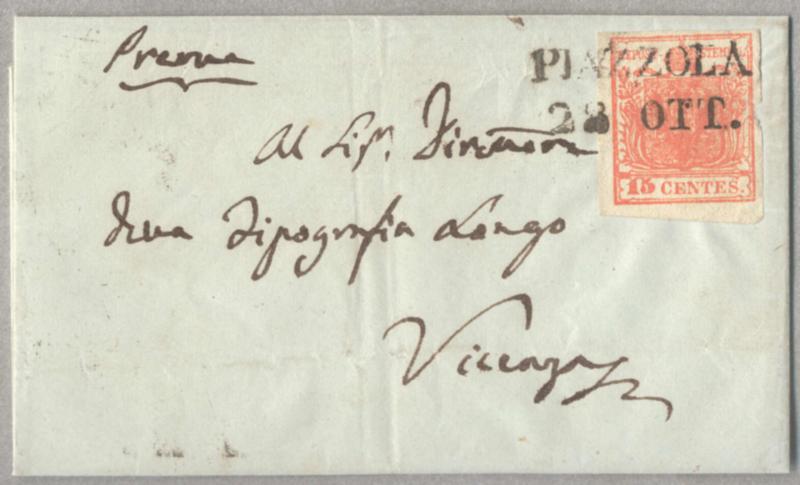 Preme
PIAZZOLA
28 OTT.
15 CENTES.
Al Sigr. Direttore
della Tipografia Longo
Vicenza